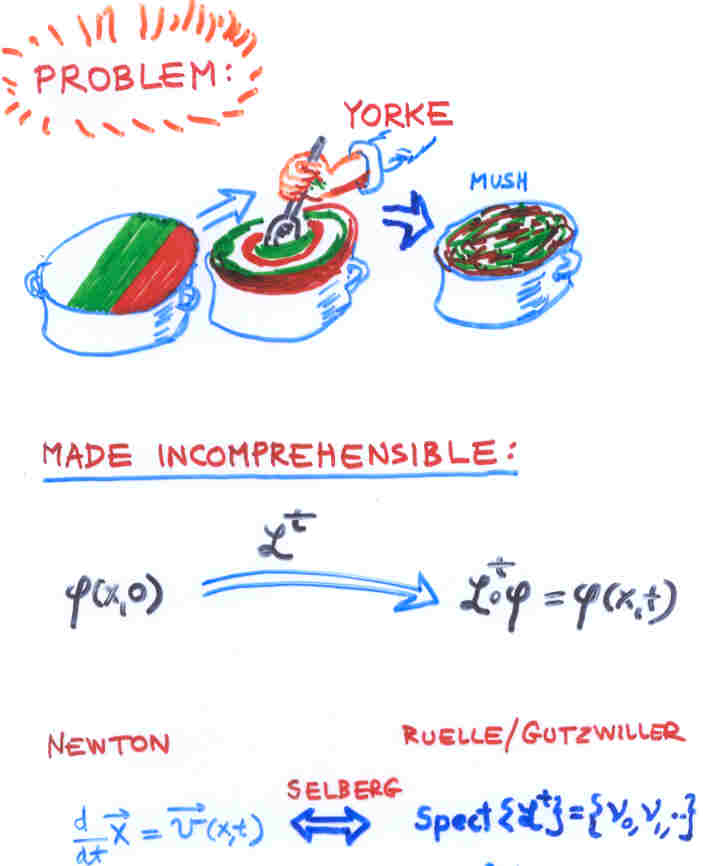 PROBLEM:
YORKE
MUSH
MADE INCOMPREHENSIBLE:
ℒᵗ
φ(x,0) ℒᵗ∘φ = φ(x,t)
NEWTON RUELLE/GUTZWILLER
SELBERG
d/dt x⃗ = v⃗(x,t) Spect {ℒᵗ} = {ν₀, ν₁, ··}